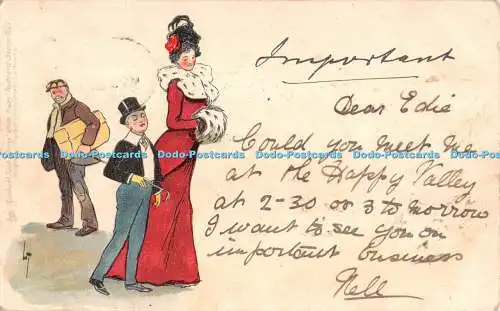 Important
Dear Edie
Could you meet me
at the Happy Valley
at 2-30 or 3 to morrow
I want to see you on
important business
Nell
Dodo-Postcards Dodo-Postcards Dodo-Postcards Dodo-Postcards Dodo-Postcards Dodo-Postcards